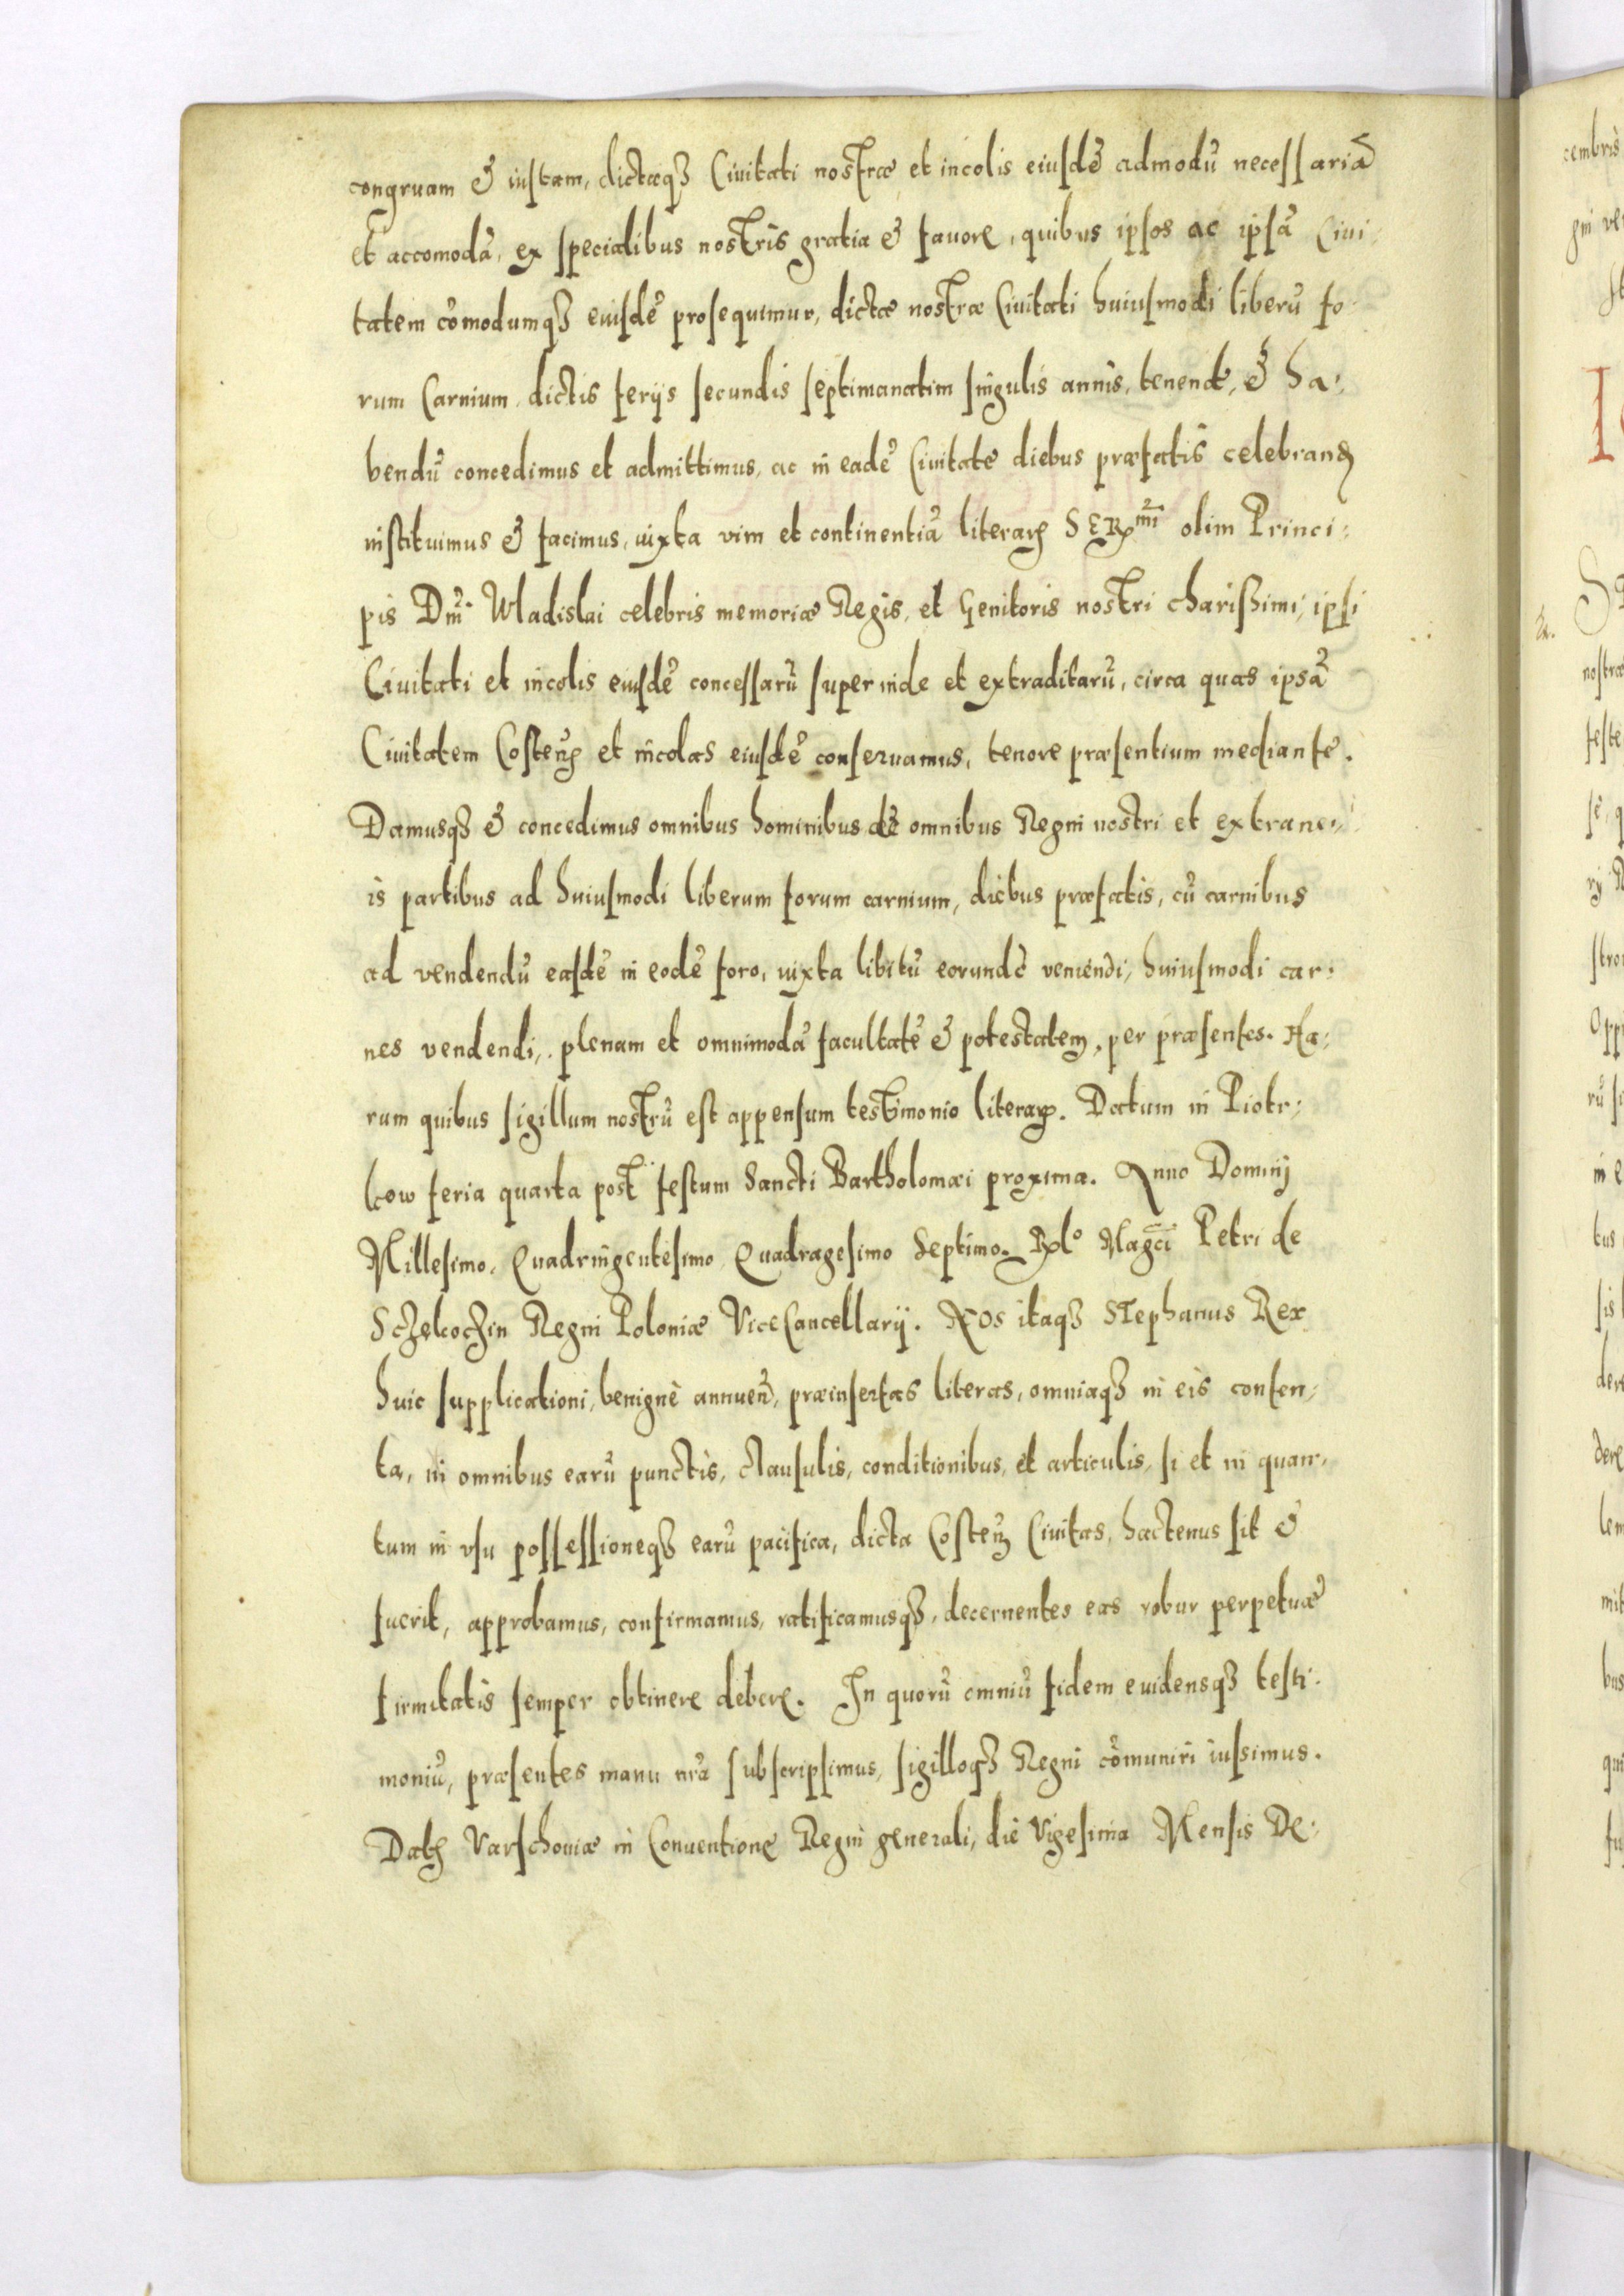 congruam & iustam, dictæq3 Ciuitati nostræ et incolis eiusdē admodū necessariā
et accomodā, ex specialibus nostris gratia & fauore, quibus ipsos ac ipsā Ciui-
tatem cōmodumq3 eiusdē prosequimur, dictæ nostræ Ciuitati huiusmodi liberū fo-
rum Carnium, dictis ferijs secundis septimanatim singulis annis, tenend, & ha-
bendū concedimus et admittimus, ac in eadē Ciuitate diebus præfatis celebrand
instituimus & facimus, iuxta vim et continentiā literarꝝ SERmi olim Princi-
pis Dni Wladislai celebris memoriæ Regis, et Genitoris nostri charißimi, ipsi
Ciuitati et incolis eiusdē concessarū super inde et extraditarū, circa quas ipsā
Ciuitatem Costeñ et incolas eiusdē conseruamus, tenore præsentium mediante.
Damusq3 & concedimus omnibus hominibus de omnibus Regni nostri et extrane-
is partibus ad huiusmodi liberum forum carnium, diebus præfatis, cū carnibus
ad vendendū easdē in eodē foro, iuxta libitū eorundē veniendi, huiusmodi car-
nes vendendi, plenam et omnimodā facultatē & potestatem, per præsentes. Ha-
rum quibus sigillum nostrū est appensum testimonio literarꝝ. Datum in Piotr-
kow feria quarta post festum Sancti Bartholomæi proxima. Anno Dominij
Millesimo. Quadringentesimo Quadragesimo Septimo. Rlo Magci Petri de
Sczekoczin Regni Poloniæ ViceCancellarij. NOs itaq3 STephanus Rex
huic supplicationi, benignè annueñ, præinsertas literas, omniaq3 in eis conten-
ta, in omnibus earū punctis, clausulis, conditionibus, et articulis, si et in quan-
tum in vsu possessioneq3 earū pacifica, dicta Costeñ Ciuitas, hactenus sit &
fuerit, approbamus, confirmamus, ratificamusq3, decernentes eas robur perpetuæ
firmitatis semper obtinere debere. In quorū omniū fidem euidensq3 testi-
moniū, præsentes manu nrā subscripsimus, sigilloq3 Regni cōmuniri iussimus.
Datꝝ Varschouiæ in Conuentione Regni generali, die Vigesima Mensis De-